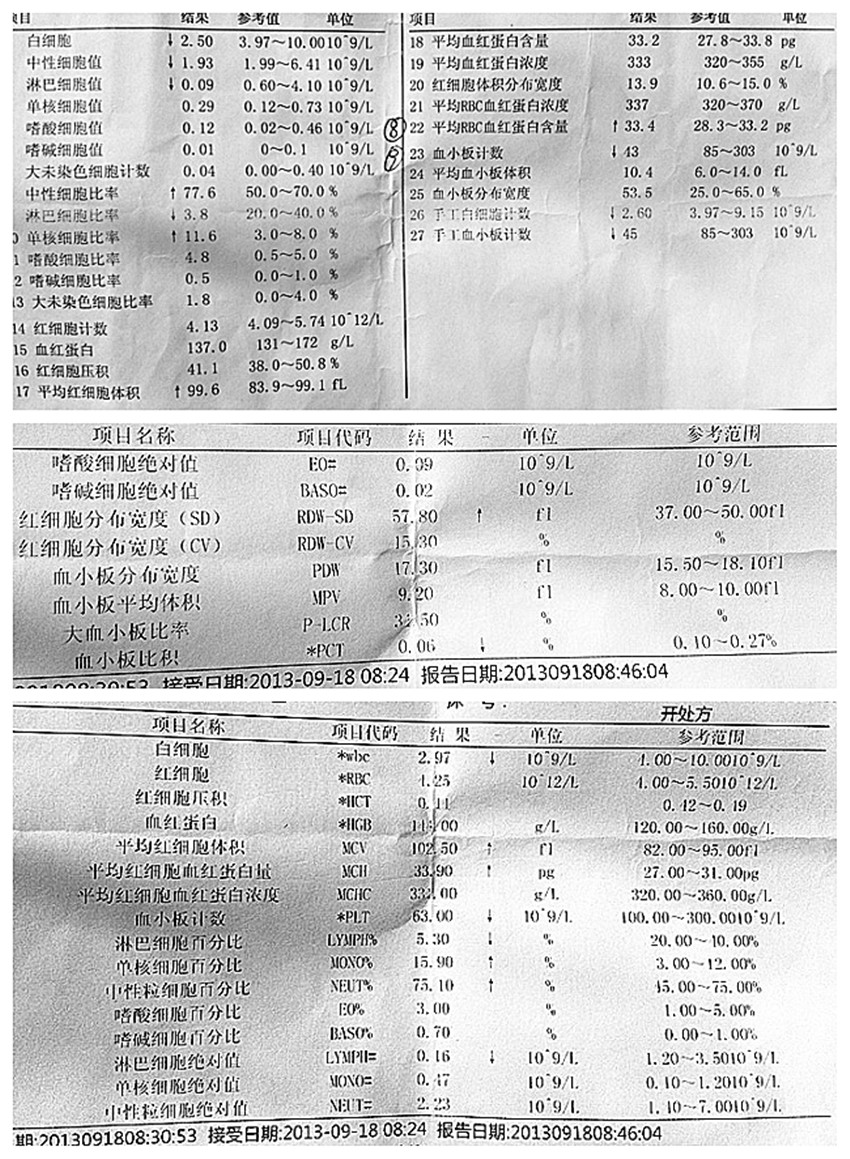 项目 结果 参考值 单位
白细胞 ↓ 2.50 3.97~10.00 10^9/L
中性细胞值 ↓ 1.93 1.99~6.41 10^9/L
淋巴细胞值 ↓ 0.09 0.60~4.10 10^9/L
单核细胞值 0.29 0.12~0.73 10^9/L
嗜酸细胞值 0.12 0.02~0.46 10^9/L
嗜碱细胞值 0.01 0~0.1 10^9/L
大未染色细胞计数 0.04 0.00~0.40 10^9/L
中性细胞比率 ↑ 77.6 50.0~70.0 %
淋巴细胞比率 ↓ 3.8 20.0~40.0 %
0 单核细胞比率 ↑ 11.6 3.0~8.0 %
1 嗜酸细胞比率 4.8 0.5~5.0 %
2 嗜碱细胞比率 0.5 0.0~1.0 %
13 大未染色细胞比率 1.8 0.0~4.0 %
14 红细胞计数 4.13 4.09~5.74 10^12/L
15 血红蛋白 137.0 131~172 g/L
16 红细胞压积 41.1 38.0~50.8 %
17 平均红细胞体积 ↑ 99.6 83.9~99.1 fL
项目 结果 参考值 单位
18 平均血红蛋白含量 33.2 27.8~33.8 pg
19 平均血红蛋白浓度 333 320~355 g/L
20 红细胞体积分布宽度 13.9 10.6~15.0 %
21 平均RBC血红蛋白浓度 337 320~370 g/L
22 平均RBC血红蛋白含量 ↑ 33.4 28.3~33.2 pg
23 血小板计数 ↓ 43 85~303 10^9/L
24 平均血小板体积 10.4 6.0~14.0 fL
25 血小板分布宽度 53.5 25.0~65.0 %
26 手工白细胞计数 ↓ 2.60 3.97~9.15 10^9/L
27 手工血小板计数 ↓ 45 85~303 10^9/L
项目名称 项目代码 结 果 - 单位 参考范围
嗜酸细胞绝对值 EO= 0.09 10^9/L 10^9/L
嗜碱细胞绝对值 BASO= 0.02 10^9/L 10^9/L
红细胞分布宽度(SD) RDW-SD 57.80 ↑ fl 37.00~50.00fl
红细胞分布宽度(CV) RDW-CV 15.30 % %
血小板分布宽度 PDW 17.30 fl 15.50~18.10fl
血小板平均体积 MPV 9.20 fl 8.00~10.00fl
大血小板比率 P-LCR % %
血小板比积 *PCT 0.06 ↓ % 0.10~0.27%
接受日期:2013-09-18 08:24 报告日期:2013091808:46:04
开处方
项目名称 项目代码 结 果 - 单位 参考范围
白细胞 *wbc 2.97 ↓ 10^9/L 4.00~10.0010^9/L
红细胞 *RBC 4.25 10^12/L 4.00~5.5010^12/L
红细胞压积 *HCT 0.42~0.49
血红蛋白 *HGB g/L 120.00~160.00g/L
平均红细胞体积 MCV 102.50 ↑ fl 82.00~95.00fl
平均红细胞血红蛋白量 MCH 33.90 ↑ pg 27.00~31.00pg
平均红细胞血红蛋白浓度 MCHC g/L 320.00~360.00g/L
血小板计数 *PLT 63.00 ↓ 10^9/L 100.00~300.0010^9/L
淋巴细胞百分比 LYMPH% 5.30 ↓ % 20.00~40.00%
单核细胞百分比 MONO% 15.90 ↑ % 3.00~12.00%
中性粒细胞百分比 NEUT% 75.10 ↑ % 45.00~75.00%
嗜酸细胞百分比 EO% 3.00 % 1.00~5.00%
嗜碱细胞百分比 BASO% 0.70 % 0.00~1.00%
淋巴细胞绝对值 LYMPH= 0.16 ↓ 10^9/L 1.20~3.5010^9/L
单核细胞绝对值 MONO= 0.47 10^9/L 0.10~1.2010^9/L
中性粒细胞绝对值 NEUT= 2.23 10^9/L 1.40~7.0010^9/L
期:2013091808:30:53 接受日期:2013-09-18 08:24 报告日期:2013091808:46:04